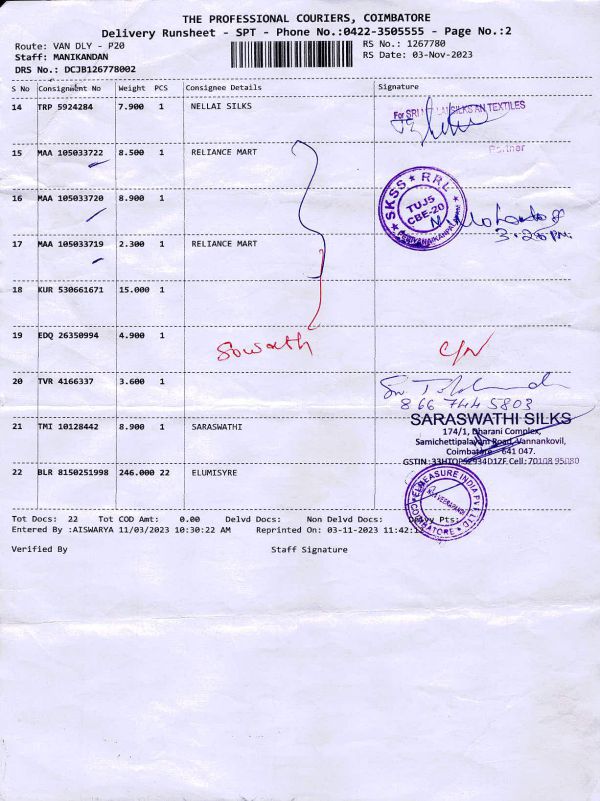 THE PROFESSIONAL COURIERS, COIMBATORE
Delivery Runsheet - SPT - Phone No.:0422-3505555 - Page No.:2
Route: VAN DLY - P20
RS No.: 1267780
Staff: MANIKANDAN
RS Date: 03-Nov-2023
DRS No.: DCJB126778002
S No Consignment No Weight PCS Consignee Details Signature
14 TRP 5924284 7.900 1 NELLAI SILKS
For SRI SILKS AN TEXTILES
Partner
15 MAA 105033722 8.500 1 RELIANCE MART
16 MAA 105033720 8.900 1
SKSS ★ RRL ★
TUJ5
CBE-20
3.20 PM
17 MAA 105033719 2.300 1 RELIANCE MART
18 KUR 530661671 15.000 1
19 EDQ 26350994 4.900 1
Sowath C/N
20 TVR 4166337 3.600 1
866 744 5803
21 TMI 10128442 8.900 1 SARASWATHI
SARASWATHI SILKS
174/1, Dharani Complex,
Samichettipalayam Road, Vannankovil,
Coimbatore - 641 047.
Cell: 70108 95080
22 BLR 8150251998 246.000 22 ELUMISYRE
MEASURE INDIA PVT LTD
★ COIMBATORE ★
VEERAPANDI
Tot Docs: 22 Tot COD Amt: 0.00 Delvd Docs: Non Delvd Docs: Delvy Pts:
Entered By :AISWARYA 11/03/2023 10:30:22 AM Reprinted On : 03-11-2023 11:42:
Verified By Staff Signature